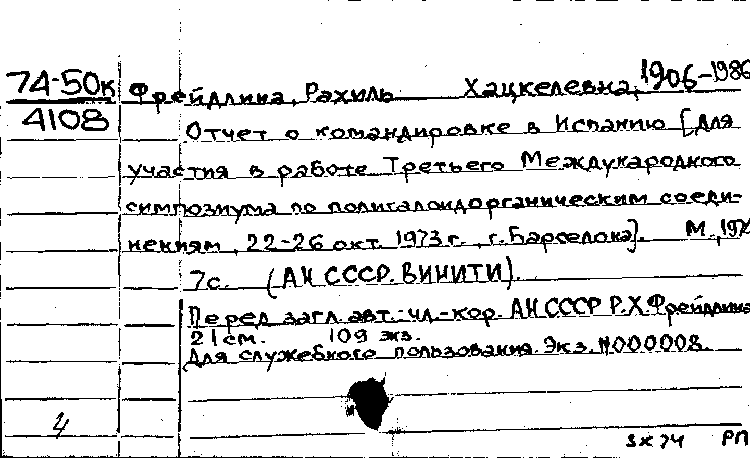 74-50к
4108
Фрейдлина, Рахиль Хацкелевна, 1906-1986
Отчет о командировке в Испанию [для
участия в работе Третьего Международного
симпозиума по полигалоидорганическим соеди-
нениям, 22-26 окт. 1973 г., г. Барселона]. М.,
7 с. (АН СССР. ВИНИТИ).
Перед загл. авт.: чл.-кор. АН СССР Р.Х. Фрейдлина
21 см. 109 экз.
Для служебного пользования. Экз. N000008.
4
3X74 РП